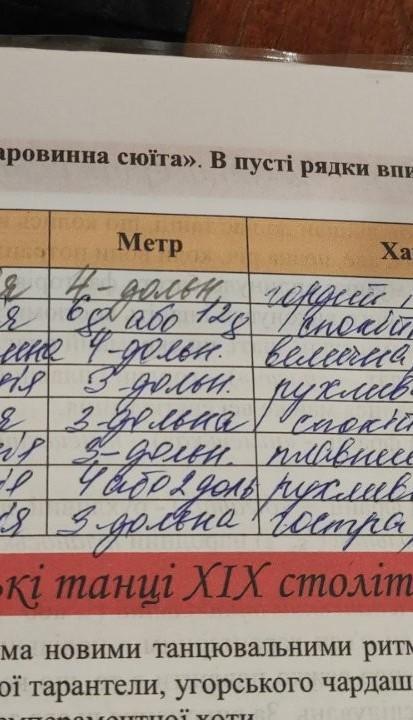 аровинна сюїта». В пусті рядки впи
Метр Ха
ія 4-дольн. гордий
ія 6/8 або 12/8 спокій
4-дольн. велична
ія 3-дольн. рухлив
ія 3-дольна спокій
ія 3-дольн. плавни
ія 4 або 2 доль рухлив
ія 3-дольна гостра,
ькі танці ХІХ століт
ма новими танцювальними ритм
ої тарантели, угорського чардаш
мпераментної хоти